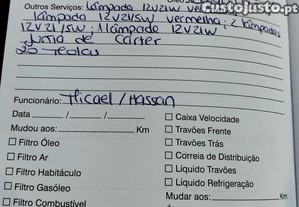 Outros Serviços: Lâmpada 12V21W ver
custojusto.pt
lâmpada 12V21/5W vermelha; 2 lâmpadas
12V21/5W; 1 lâmpada 12V21W
Junta de Carter
Funcionário: Micael/Hassan
Data / /
Mudou aos: Km
Filtro Óleo
Filtro Ar
Filtro Habitáculo
Filtro Gasóleo
Filtro Combustível
Caixa Velocidade
Travões Frente
Travões Trás
Correia de Distribuição
Líquido Travões
Líquido Refrigeração
Mudar aos: Km